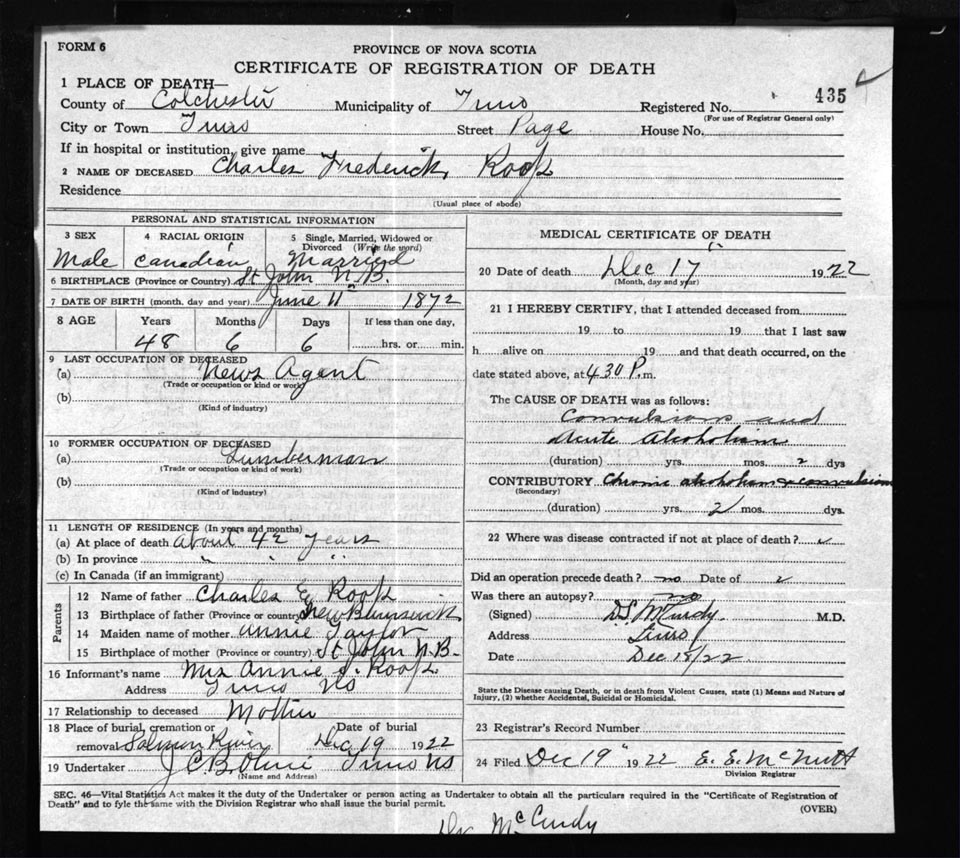 FORM 6
PROVINCE OF NOVA SCOTIA
CERTIFICATE OF REGISTRATION OF DEATH
1 PLACE OF DEATH—
County of Colchester Municipality of Truro Registered No. 435
(For use of Registrar General only)
City or Town Truro Street Page House No.
If in hospital or institution, give name
2 NAME OF DECEASED Charles Frederick Roop
Residence
(Usual place of abode)
PERSONAL AND STATISTICAL INFORMATION
3 SEX 4 RACIAL ORIGIN 5 Single, Married, Widowed or
Divorced (Write the word)
Male Canadian Married
6 BIRTHPLACE (Province or Country) St John N.B.
7 DATE OF BIRTH (month, day and year) June 11 1872
8 AGE Years Months Days If less than one day,
48 6 6 hrs. or min.
9 LAST OCCUPATION OF DECEASED
(a) News Agent
(Trade or occupation or kind or work)
(b)
(Kind of industry)
10 FORMER OCCUPATION OF DECEASED
(a) Lumberman
(Trade or occupation or kind of work)
(b)
(Kind of industry)
11 LENGTH OF RESIDENCE (In years and months)
(a) At place of death about 42 years
(b) In province " " "
(c) In Canada (if an immigrant)
Parents
12 Name of father Charles E Roop
13 Birthplace of father (Province or country) New Brunswick
14 Maiden name of mother Annie Taylor
15 Birthplace of mother (Province or country) St John N.B.
16 Informant's name Mrs Annie J. Roop
Address Truro NS
17 Relationship to deceased Mother
18 Place of burial, cremation or Date of burial
removal Salmon River Dec 19 1922
19 Undertaker J C B Olive Truro NS
(Name and Address)
MEDICAL CERTIFICATE OF DEATH
20 Date of death Dec 17 1922
(Month, day and year)
21 I HEREBY CERTIFY, that I attended deceased from
19 to 19 that I last saw
h alive on 19 and that death occurred, on the
date stated above, at 4.30 P.m.
The CAUSE OF DEATH was as follows:
Convulsions and
Acute Alcoholism
(duration) yrs. mos. 2 dys
CONTRIBUTORY Chronic alcoholism & convulsions
(Secondary)
(duration) yrs. 2 mos. dys.
22 Where was disease contracted if not at place of death?
Did an operation precede death? no Date of
Was there an autopsy? no
(Signed) D.S. McCurdy M.D.
Address Truro
Date Dec 18/22
State the Disease causing Death, or in death from Violent Causes, state (1) Means and Nature of
Injury, (2) whether Accidental, Suicidal or Homicidal.
23 Registrar's Record Number
24 Filed Dec 19" 1922 E. E. McNutt
Division Registrar
SEC. 46—Vital Statistics Act makes it the duty of the Undertaker or person acting as Undertaker to obtain all the particulars required in the "Certificate of Registration of
Death" and to fyle the same with the Division Registrar who shall issue the burial permit.
(OVER)
Dr McCurdy